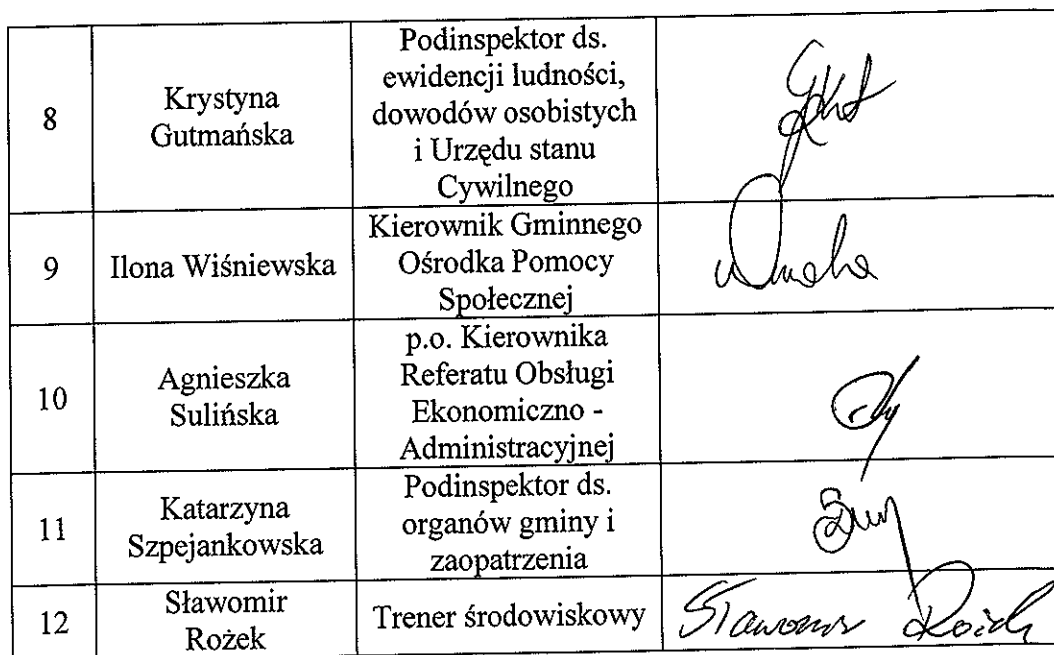 8
Krystyna
Gutmańska
Podinspektor ds.
ewidencji ludności,
dowodów osobistych
i Urzędu stanu
Cywilnego
9
Ilona Wiśniewska
Kierownik Gminnego
Ośrodka Pomocy
Społecznej
10
Agnieszka
Sulińska
p.o. Kierownika
Referatu Obsługi
Ekonomiczno -
Administracyjnej
11
Katarzyna
Szpejankowska
Podinspektor ds.
organów gminy i
zaopatrzenia
12
Sławomir
Rożek
Trener środowiskowy